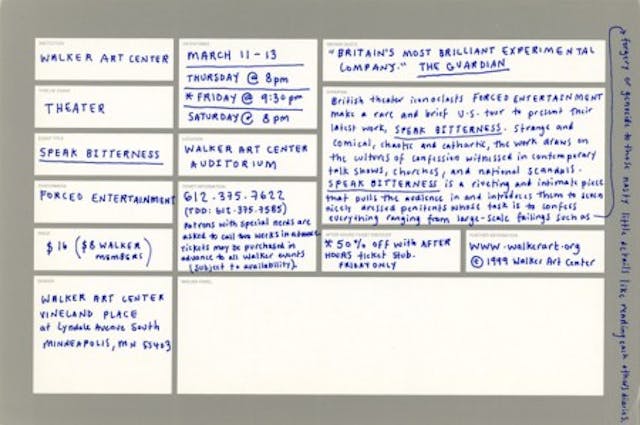 WALKER ART CENTER
THEATER
SPEAK BITTERNESS
FORCED ENTERTAINMENT
$16 ($8 WALKER
MEMBERS)
WALKER ART CENTER
VINELAND PLACE
at Lyndale Avenue South
MINNEAPOLIS, MN 55403
MARCH 11-13
THURSDAY @ 8pm
* FRIDAY @ 9:30pm
SATURDAY @ 8pm
WALKER ART CENTER
AUDITORIUM
612.375.7622
(TDD: 612.375.7585)
Patrons with special needs are
asked to call two weeks in advance
tickets may be purchased in
advance to all Walker events
(subject to availability).
"BRITAIN'S MOST BRILLIANT EXPERIMENTAL
COMPANY." THE GUARDIAN
British theater iconoclasts FORCED ENTERTAINMENT
make a rare and brief U.S. tour to present their
latest work, SPEAK BITTERNESS. Strange and
comical, chaotic and cathartic, the work draws on
the culture of confession witnessed in contemporary
talk shows, churches, and national scandals.
SPEAK BITTERNESS is a riveting and intimate piece
that pulls the audience in and introduces them to seven
nicely dressed penitents whose task is to confess
everything ranging from large-scale failings such as
forgery or genocide to those nasty little details like reading each others diaries.
* 50% OFF with AFTER
HOURS ticket stub.
FRIDAY ONLY
www.walkerart.org
© 1999 Walker Art Center